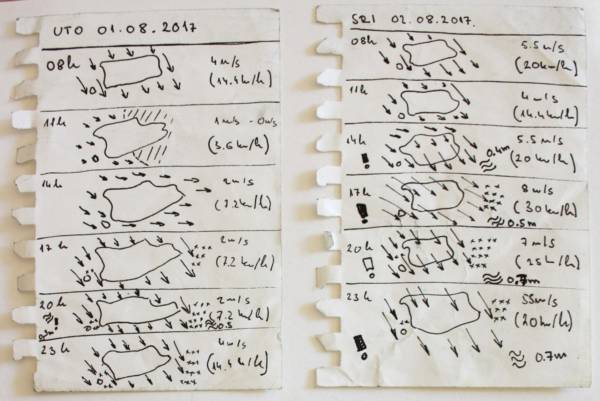 UTO 01.08.2017
08h 4m/s
(14.4km/h)
11h 1m/s - 0m/s
(3.6km/h)
14h 2m/s
(7.2km/h)
17h 2m/s
(7.2km/h)
20h 2m/s
! (7.2km/h)
0.5
23h 4m/s
(14.4km/h)
SRI 02.08.2017.
08h 5.5m/s
(20km/h)
11h 4m/s
(14.4km/h)
14h 5.5m/s
! 0.4m (20km/h)
17h 8m/s
! (30km/h)
0.5m
20h 7m/s
! (25km/h)
0.7m
23h 55m/s
(20km/h)
! 0.7m